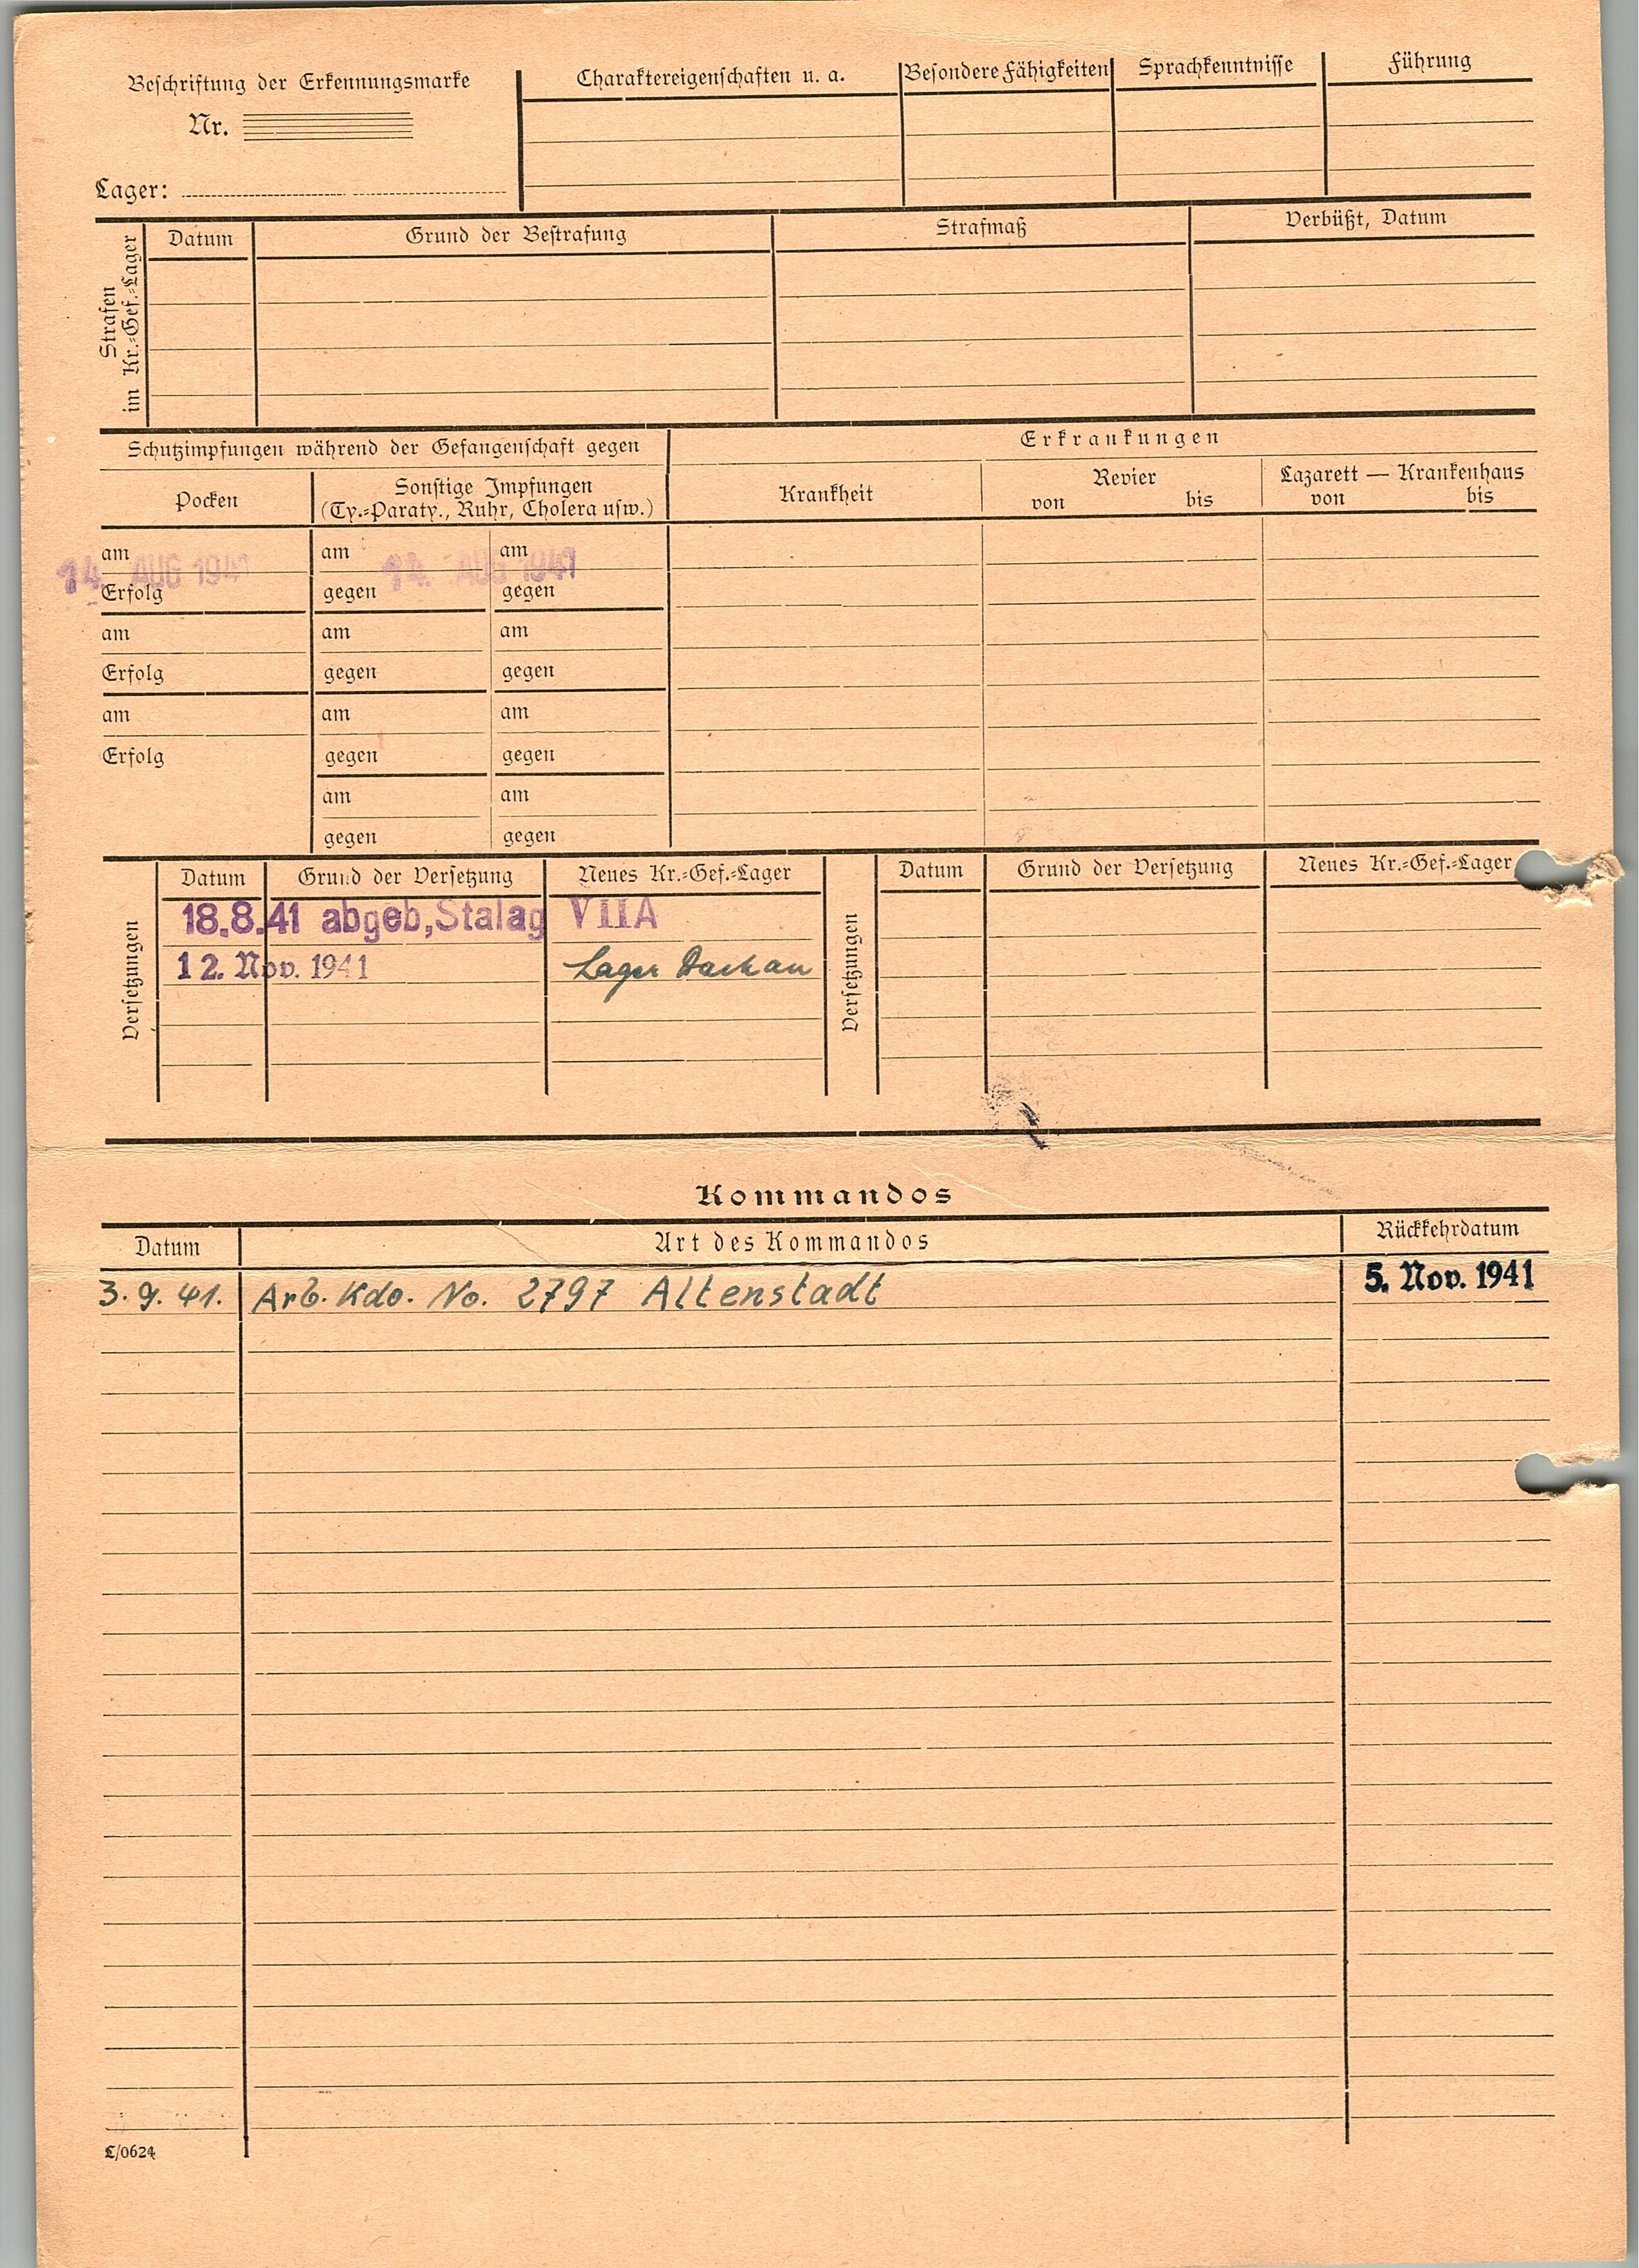 Beschriftung der Erkennungsmarke
Nr.
Lager:
Charaktereigenschaften u. a.
Besondere Fähigkeiten
Sprachkenntnisse
Führung
Strafen
im Kr.-Gef.-Lager
Datum
Grund der Bestrafung
Strafmaß
Verbüßt, Datum
Schutzimpfungen während der Gefangenschaft gegen
Erkrankungen
Pocken
Sonstige Impfungen
(Ty.-Paraty., Ruhr, Cholera usw.)
Krankheit
Revier
von bis
Lazarett — Krankenhaus
von bis
am am am
14. AUG 1941 14. AUG 1941
Erfolg gegen gegen
am am am
Erfolg gegen gegen
am am am
Erfolg gegen gegen
am am
gegen gegen
Versetzungen
Datum Grund der Versetzung Neues Kr.-Gef.-Lager
18.8.41 abgeb, Stalag VIIA
12. Nov. 1941 Lager Dachau
Versetzungen
Datum Grund der Versetzung Neues Kr.-Gef.-Lager
Kommandos
Datum Art des Kommandos Rückkehrdatum
3. 9. 41. Arb. Kdo. No. 2797 Altenstadt 5. Nov. 1941
L/0624